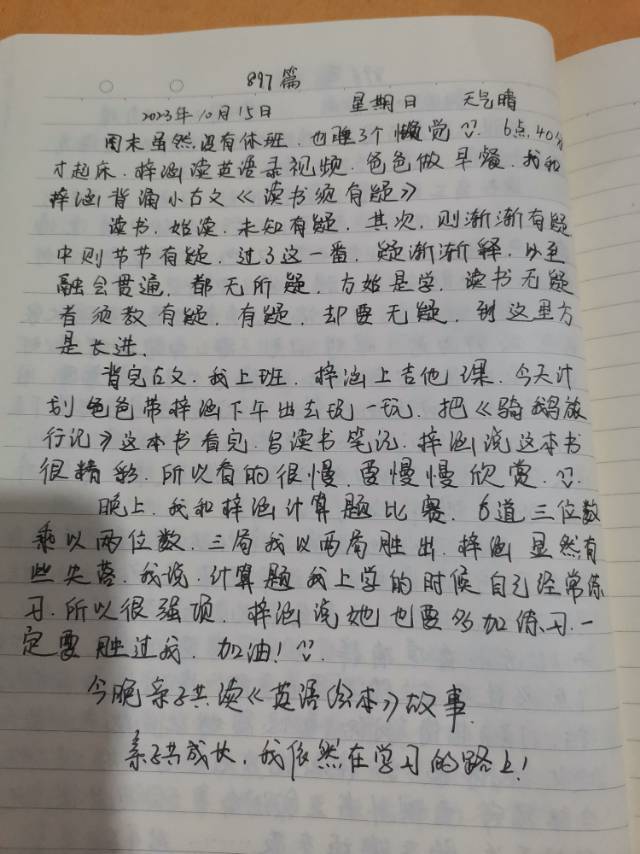 897篇
2023年10月15日 星期日 天气晴
周末虽然没有休班.也睡3个懒觉 6点.40分
才起床.梓涵读英语录视频.爸爸做早餐.我和
梓涵背诵小古文《读书须有疑》
读书.始读.未知有疑.其次.则渐渐有疑
中则节节有疑.过了这一番.疑渐渐释.以至
融会贯通.都无所疑.方始是学.读书无疑
者须教有疑.有疑.却要无疑.到这里方
是长进.
背完古文.我上班.梓涵上吉他课.今天计
划爸爸带梓涵下午出去玩一玩.把《骑鹅旅
行记》这本书看完.写读书笔记.梓涵说这本书
很精彩.所以看的很慢.要慢慢欣赏.
晚上.我和梓涵计算题比赛.6道三位数
乘以两位数.三局我以两局胜出.梓涵显然有
些失落.我说.计算题我上学的时候自己经常练
习.所以很强项.梓涵说她也要多加练习.一
定要胜过我.加油!
今晚亲子共读《英语绘本》故事.
亲子共成长.我依然在学习的路上!